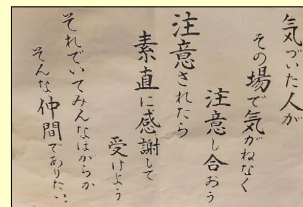 気づいた人が
その場で気がねなく
注意し合おう
注意されたら
素直に感謝して
受けよう
それでいてみんなほがらか
そんな仲間でありたい